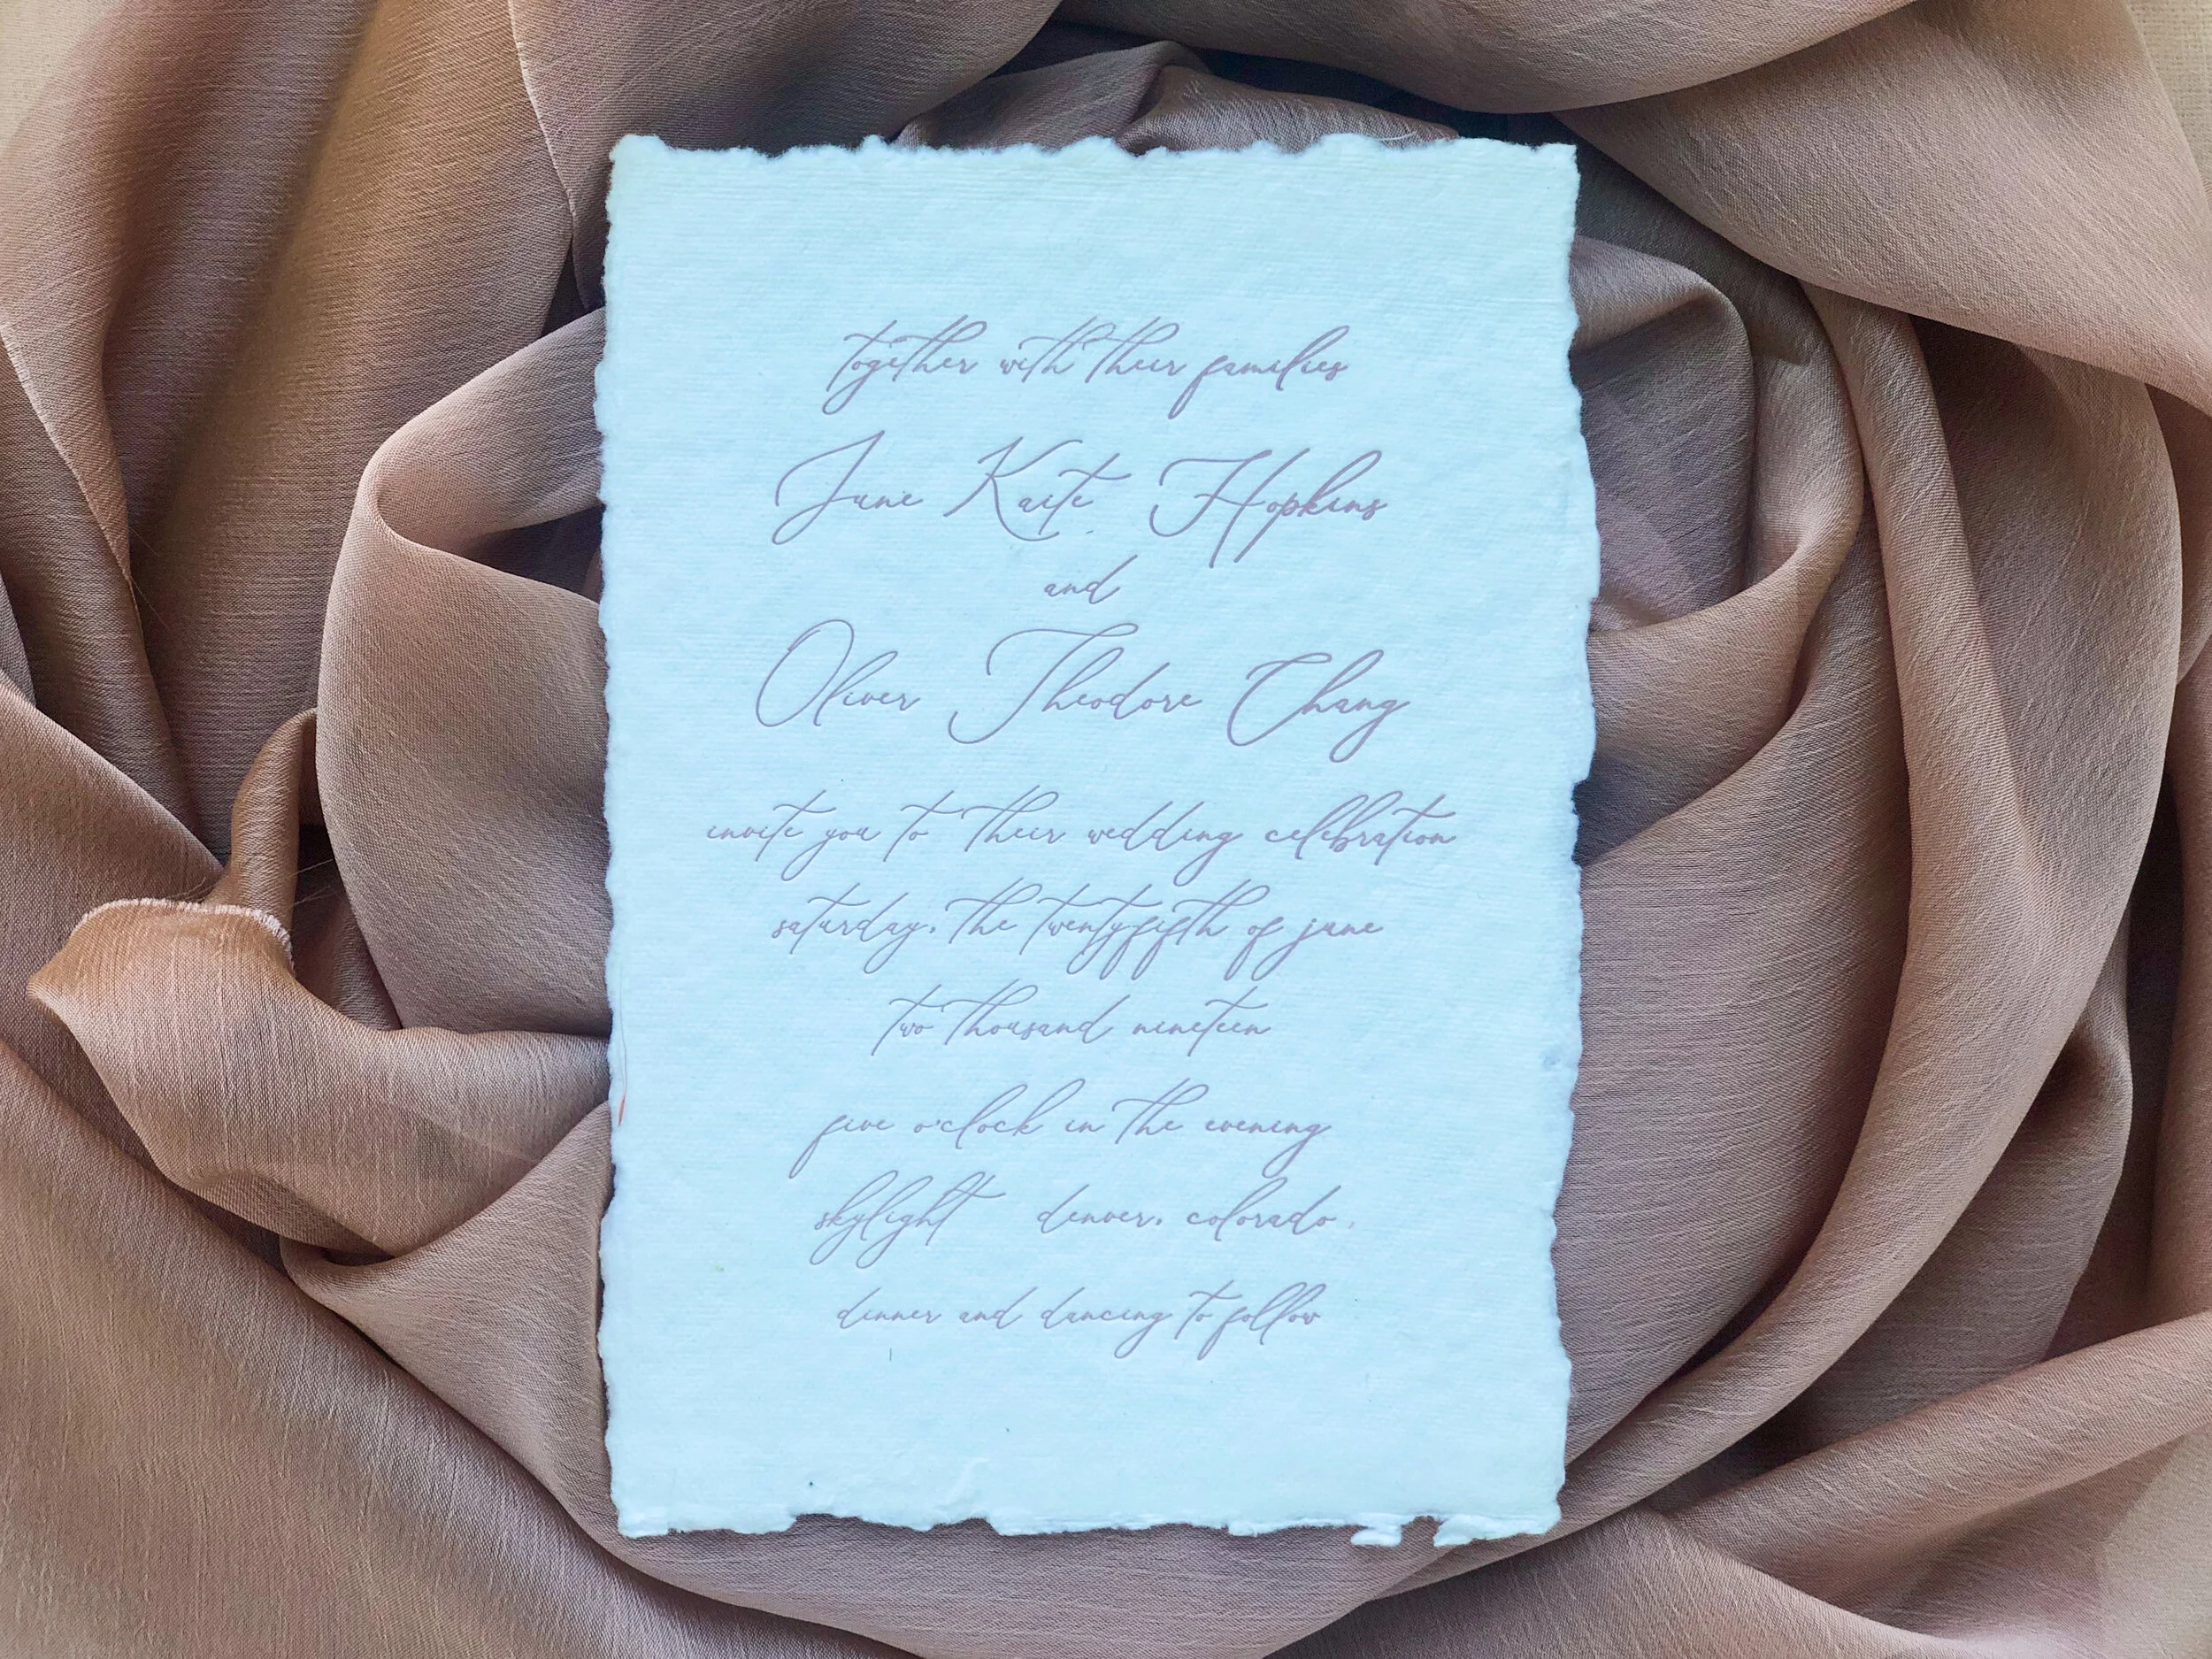 together with their families
June Kaite Hopkins
and
Oliver Theodore Chang
invite you to their wedding celebration
saturday, the twentyfifth of june
two thousand nineteen
five o'clock in the evening
skylight denver, colorado,
dinner and dancing to follow